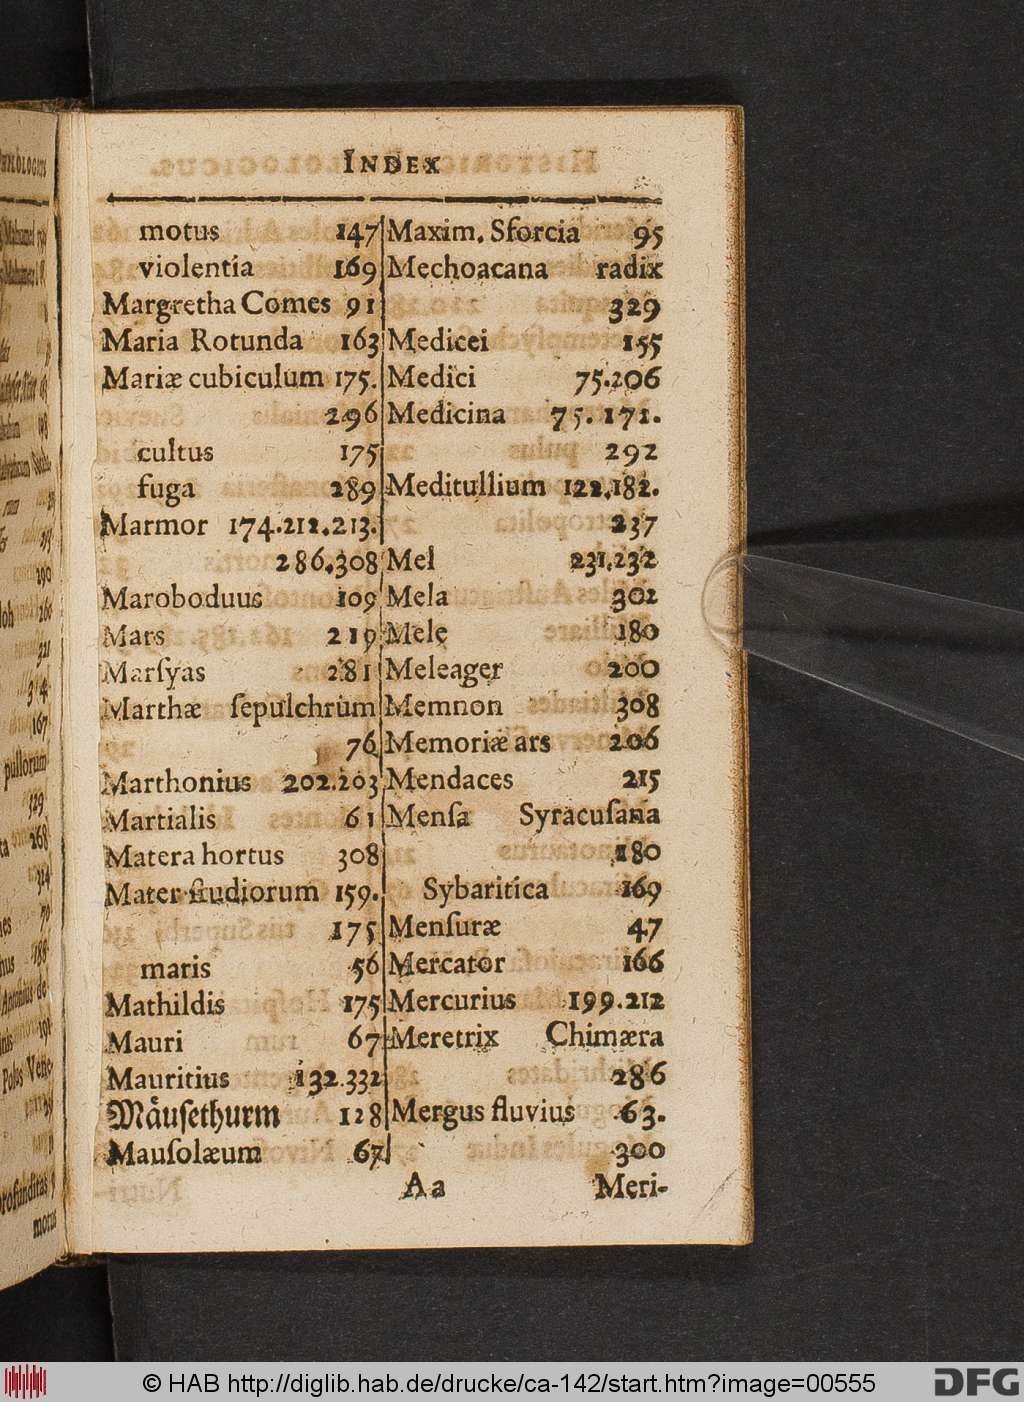 INDEX
motus 147
violentia 169
Margretha Comes 91
Maria Rotunda 163
Mariæ cubiculum 175.
296
cultus 175
fuga 289
Marmor 174.212.213.
286.308
Maroboduus 109
Mars 219
Marſyas 281
Marthæ ſepulchrum
76
Marthonius 202.203
Martialis 61
Matera hortus 308
Mater ſtudiorum 159.
175
maris 56
Mathildis 175
Mauri 67
Mauritius 132.332
Mäuſethurm 128
Mauſolæum 67
Maxim. Sforcia 95
Mechoacana radix
329
Medicei 155
Medici 75.206
Medicina 75.171.
292
Meditullium 122.182.
237
Mel 231.232
Mela 302
Mele 180
Meleager 200
Memnon 308
Memoriæ ars 206
Mendaces 215
Menſa Syracuſana
180
Sybaritica 169
Menſuræ 47
Mercator 166
Mercurius 199.212
Meretrix Chimæra
286
Mergus fluvius 63.
300
Aa Meri-
pullorum
profunditas
motus
© HAB http://diglib.hab.de/drucke/ca-142/start.htm?image=00555
DFG